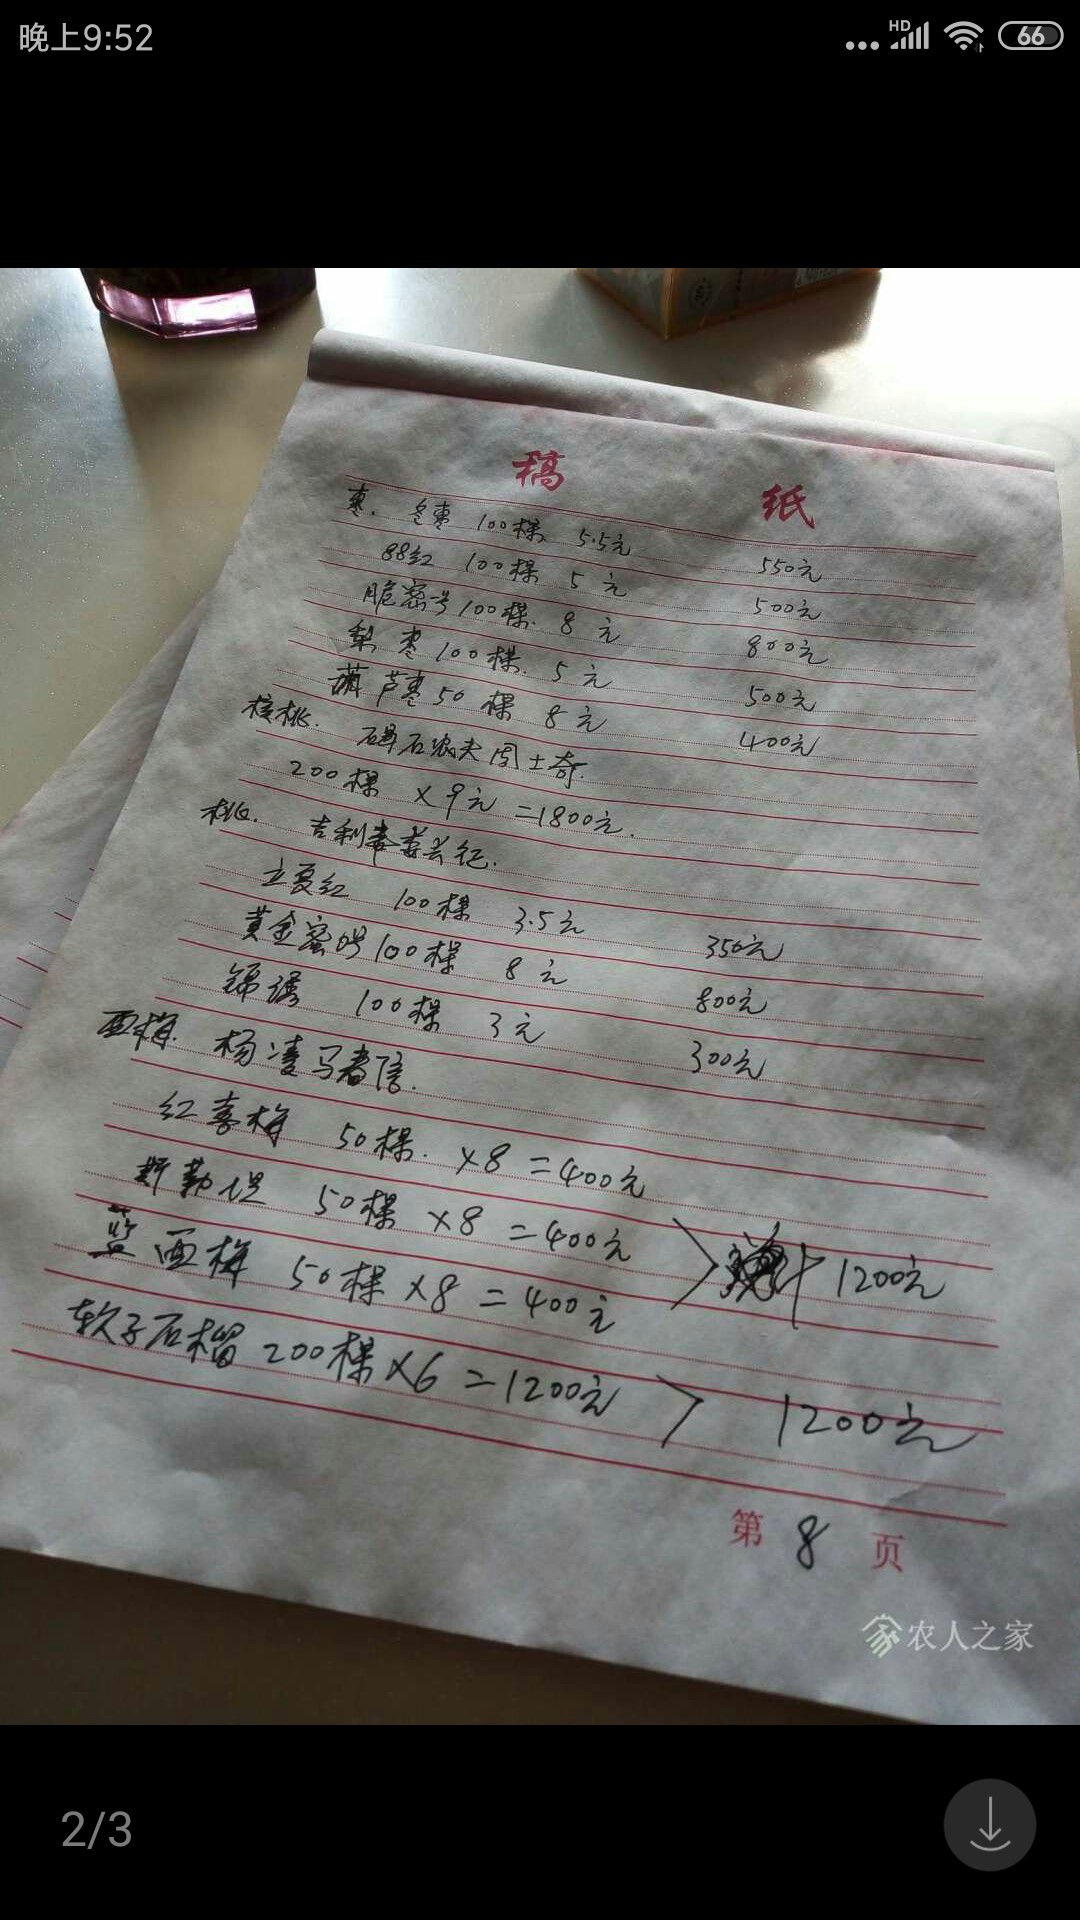 晚上9:52
HD
66
稿 纸
枣. 冬枣 100棵 5.5元 550元
88红 100棵 5元 500元
脆蜜号100棵. 8元 800元
梨枣100棵. 5元 500元
葫芦枣50棵 8元 400元
核桃. 石农夫周士奇.
200棵 ×9元=1800元.
桃. 吉利
立夏红 100棵 3.5元 350元
黄金蜜 100棵 8元 800元
锦绣 100棵 3元 300元
西梅. 杨凌马
红喜梅 50棵. ×8=400元
斯勒 50棵 ×8=400元
蓝西梅 50棵×8=400元 1200元
软子石榴 200棵×6=1200元 1200元
第 8 页
农人之家
2/3